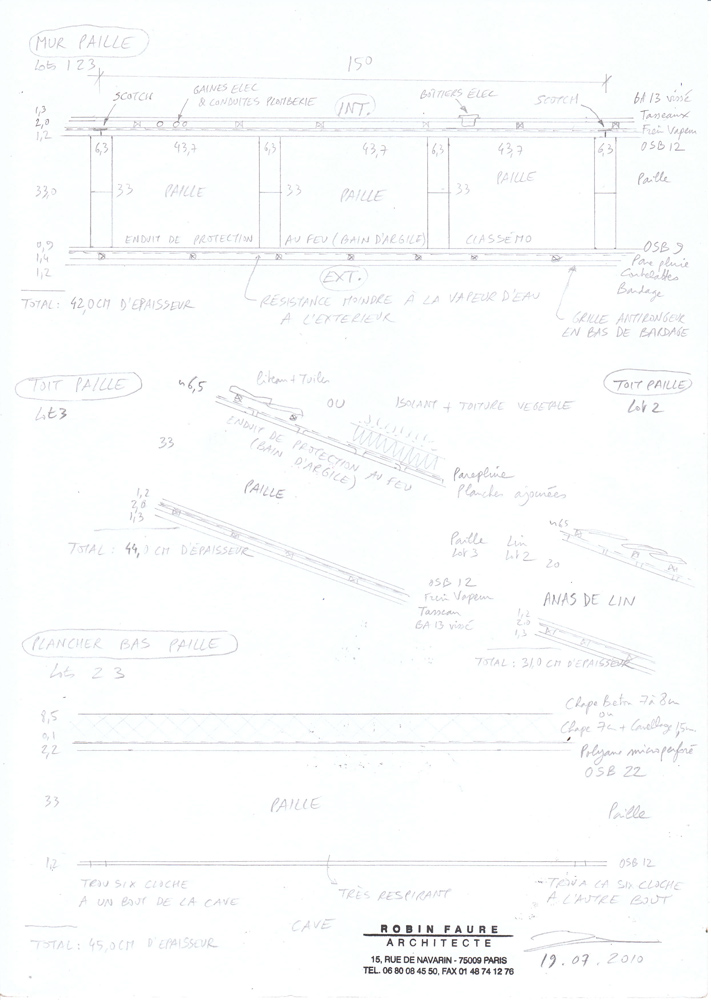 MUR PAILLE
Lots 1 2 3
150
SCOTCH
GAINES ELEC
& CONDUITES PLOMBERIE
INT.
BOÎTIERS ÉLEC
SCOTCH
BA 13 vissé
Tasseaux
Frein Vapeur
OSB 12
1,3
2,0
1,2
6,3 43,7 6,3 43,7 6,3 43,7 6,3
33,0
33 PAILLE 33 PAILLE 33 PAILLE
Paille
ENDUIT DE PROTECTION AU FEU (BAIN D'ARGILE) CLASSÉ MO
0,9
1,4
1,2
OSB 9
Pare pluie
Contrelattes
Bardage
EXT.
TOTAL : 42,0 CM D'EPAISSEUR
RÉSISTANCE MOINDRE À LA VAPEUR D'EAU
A L'EXTERIEUR
GRILLE ANTIRONGEUR
EN BAS DE BARDAGE
TOIT PAILLE
Lot 3
~6,5
Liteau + Tuiles
OU ISOLANT + TOITURE VEGETALE
TOIT PAILLE
Lot 2
33
ENDUIT DE PROTECTION AU FEU
(BAIN D'ARGILE)
PAILLE
Parepluie
Planches ajourées
1,2
2,0
1,3
TOTAL : 44,0 CM D'ÉPAISSEUR
Paille Lin
Lot 3 Lot 2
~65
20
OSB 12
Frein Vapeur
Tasseau
BA 13 vissé
ANAS DE LIN
1,2
2,0
1,3
TOTAL : 31,0 CM D'EPAISSEUR
PLANCHER BAS PAILLE
Lots 2 3
8,5
0,1
2,2
Chape Beton 7 à 8cm
ou
Chape 7cm + Carrelage 1,5cm
Polyane microperforé
OSB 22
33
PAILLE
Paille
1,2
OSB 12
TROU SIX CLOCHE
A UN BOUT DE LA CAVE
TRÈS RESPIRANT
TROU A LA SIX CLOCHE
A L'AUTRE BOUT
CAVE
TOTAL : 45,0 CM D'EPAISSEUR
ROBIN FAURE
ARCHITECTE
15, RUE DE NAVARIN - 75009 PARIS
TEL. 06 80 08 45 50, FAX 01 48 74 12 76
19.07.2010